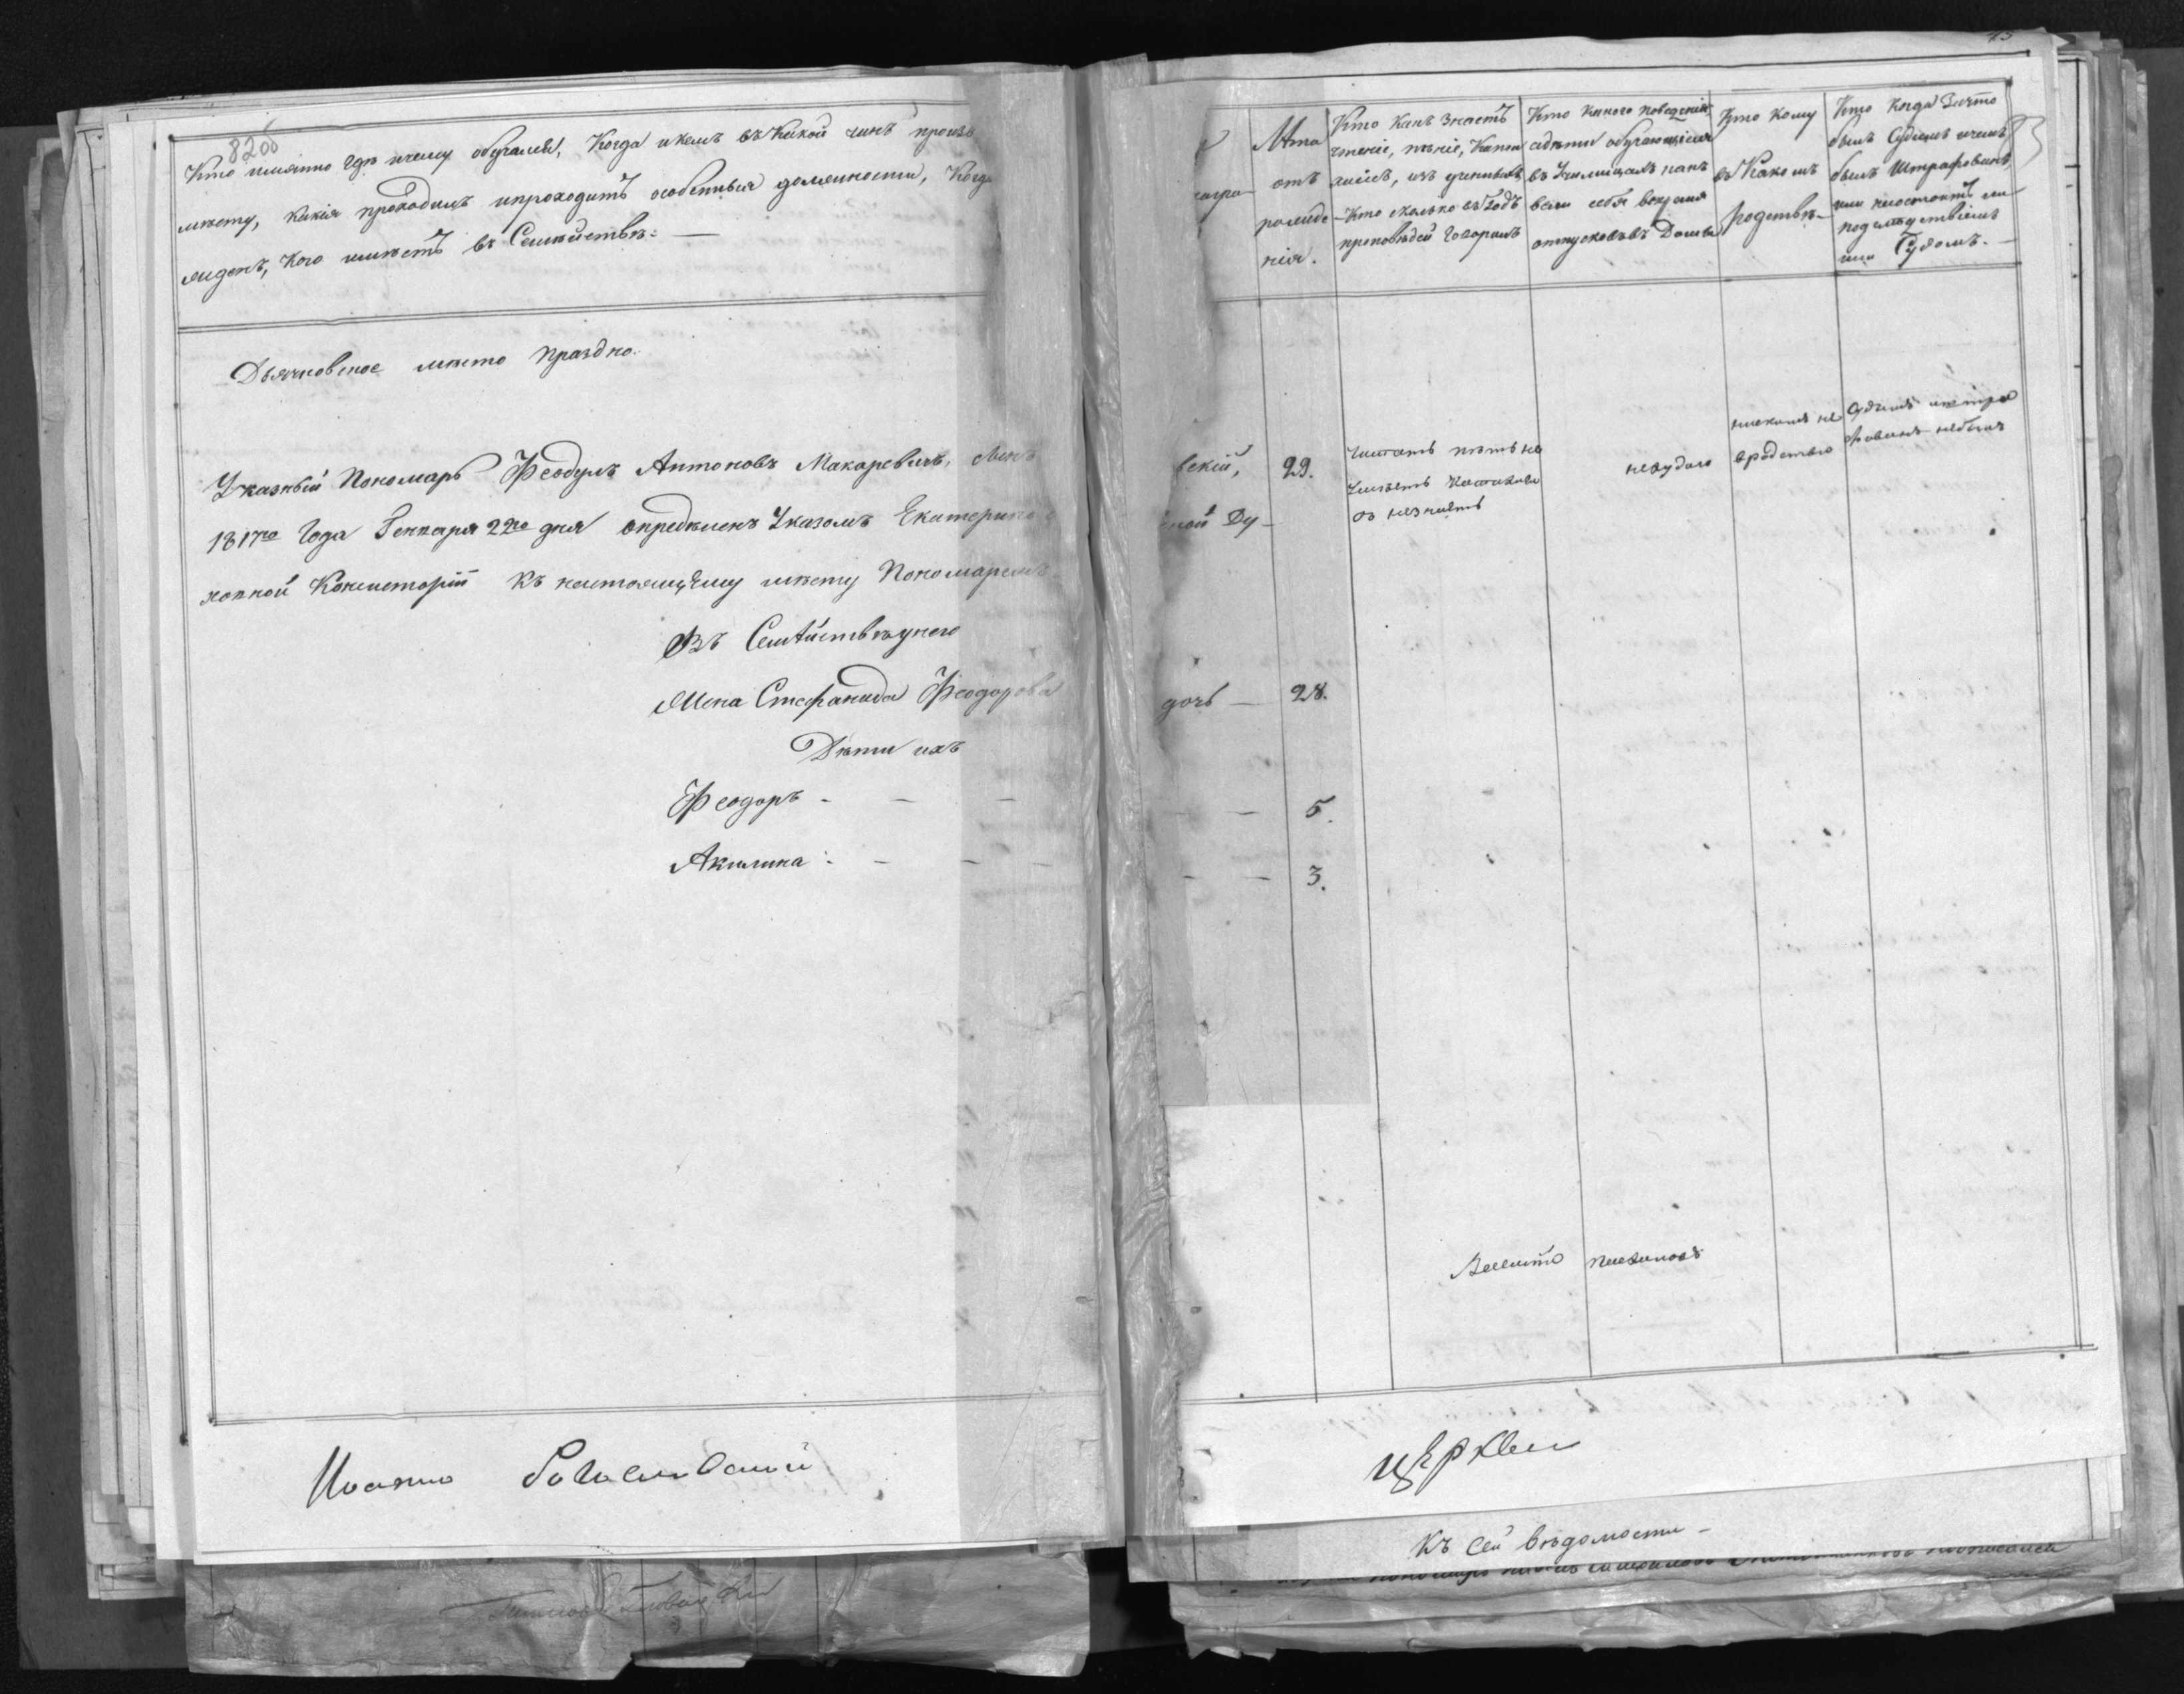 82об
Кто имянно где ичему обучался, Когда икемъ въ Какой чинъ произв
месту, какія проходилъ ипроходитъ особенныя должности, Когда
жденъ, Кого имѣетъ въ Семействѣ:
Дьячковское мѣсто праздно.
Указный Пономарь Феодулъ Антоновъ Макаревичъ,
1817го Года Генваря 22го дня опредѣленъ Указомъ Екатерино
ховной Консисторіи Къ настоящему мѣсту Пономаремъ
Въ Семѣйствѣ унего
Жена Стефанида Феодорова
Дѣти ихъ
Феодоръ
Акилина
Иоанно
83
награ
Лѣта
отъ
рожде
нія.
Кто Какъ Знаетъ
чтеніе, пѣніе, Кати
хисисъ, изъ ученыхъ
Кто сколько въ Годъ
проповѣдей Говорилъ
Кто Какого поведенія
адѣти обучающіися
въ Училищахъ какъ
вели себя вовремя
отпусковъ въ Домы
Кто Кому
въ Какомъ
родствѣ
Кто Когда Зачто
былъ Судимъ ичемъ
былъ Штрафованъ,
или несостоитъ ли
подслѣдствіемъ
или Судомъ.
вскій, 29.
ной Ду-
Читать пѣть не
умѣетъ Катихизи
са незнаетъ
нехудаго
никомъ не
вродствѣ
Судимъ иштра
фованъ небылъ
дочь 28.
5.
3.
церкви
Къ сей вѣдомости